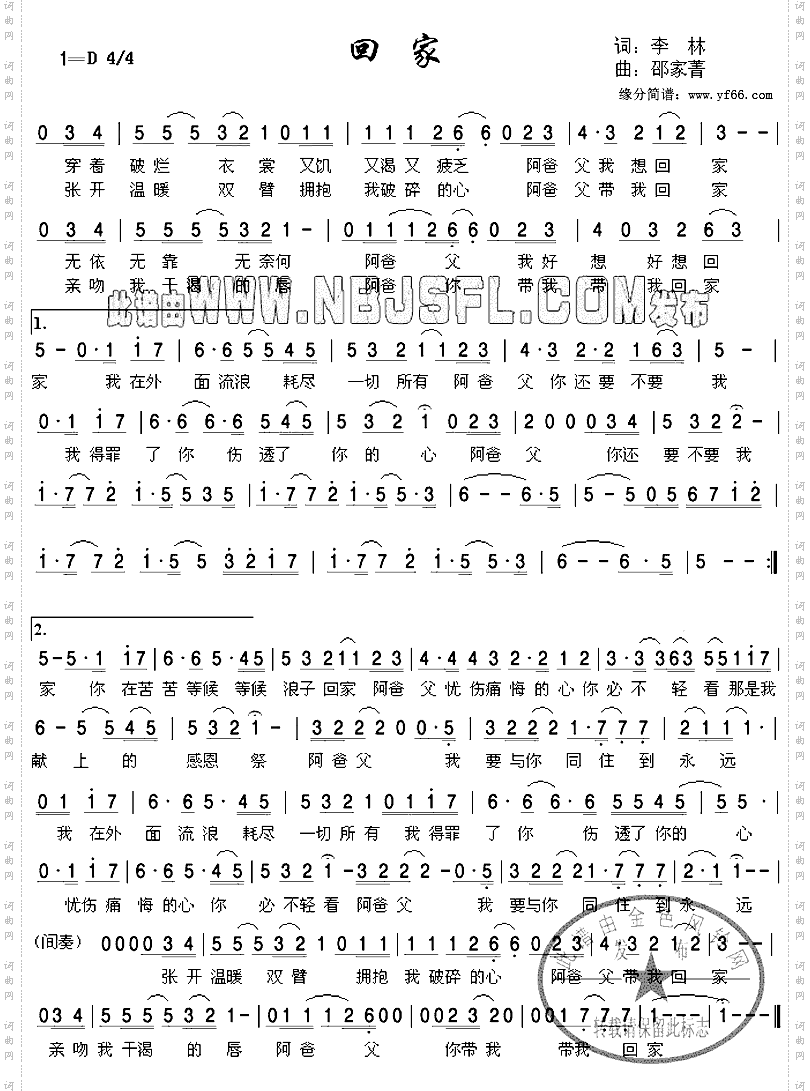 回 家
1=D 4/4
词：李 林
曲：邵家菁
缘分简谱：www.yf66.com
0 3 4 | 5 5 5 5 3 2 1 0 1 1 | 1 1 1 2 6 6 0 2 3 | 4· 3 2 1 2 | 3 - - |
穿着 破烂 衣裳又饥 又渴又 疲乏 阿爸 父我 想回 家
张开 温暖 双臂 拥抱 我破碎 的心 阿爸 父带 我回 家
0 3 4 | 5 5 5 5 5 3 2 1 - | 0 1 1 1 2 6 6 0 2 3 | 4 0 3 2 6 3 |
无依 无靠 无奈何 阿爸 父 我好 想 好想回
亲吻 我干渴 的唇 阿爸 你 带我 带 我回家
此谱由WWW.NBJSFL.COM发布
1.
5 - 0· 1 1 7 | 6· 6 5 5 4 5 | 5 3 2 1 1 2 3 | 4· 3 2· 2 1 6 3 | 5 - |
家 我在外 面流浪 耗尽 一切 所有 阿爸 父你还要 不要 我
0· 1 1 7 | 6· 6 6 6 5 4 5 | 5 3 2 1 0 2 3 | 2 0 0 0 3 4 | 5 3 2 2 - |
我得罪 了你 伤透了 你的 心 阿爸 父 你还 要不要我
1· 7 7 2 1· 5 5 3 5 | 1· 7 7 2 1· 5 5· 3 | 6 - - 6· 5 | 5 - 5 0 5 6 7 1 2 |
1· 7 7 2 1· 5 5 3 2 1 7 | 1· 7 7 2 1· 5 5· 3 | 6 - - 6· 5 | 5 - - :||
2.
5 - 5· 1 1 7 | 6· 6 5· 4 5 | 5 3 2 1 1 2 3 | 4· 4 4 3 2· 2 1 2 | 3· 3 3 6 3 5 5 1 1 7 |
家 你 在苦苦等候 等候 浪子回家 阿爸 父忧伤痛悔的心你必不 轻看那是我
6 - 5 5 4 5 | 5 3 2 1 - | 3 2 2 2 2 0 0· 5 | 3 2 2 2 1· 7 7 7 | 2 1 1 1· |
献上的 感恩 祭 阿爸父 我 要与你 同住 到永远
0 1 1 7 | 6· 6 5· 4 5 | 5 3 2 1 0 1 1 7 | 6 6 6· 6 5 5 4 5 | 5 - - |
我 在外 面流浪 耗尽 一切所有 我得罪 了你 伤透了你的 心
0· 1 1 7 | 6· 6 5· 4 5 | 5 3 2 1 - 3 2 2 2 - 0· 5 | 3 2 2 2 1· 7 7 7 | 2· 1 1 - - |
忧伤痛 悔的心你 必不轻看 阿爸父 我 要与你 同住 到永 远
(间奏) 0 0 0 0 3 4 | 5 5 5 5 3 2 1 0 1 1 | 1 1 1 2 6 6 0 2 3 | 4· 3 2 1 2 | 3 - - |
张开 温暖 双臂 拥抱 我破碎的心 阿爸 父带我回 家
0 3 4 | 5 5 5 5 5 3 2 1 - | 0 1 1 1 2 6 6 0 0 | 0 0 2 3 2 0 | 0 0 1 7 7 7 | 2 - - 1 - | 1 - - ||
亲吻我干渴 的唇 阿爸 父 你带我 带我 回家
此谱由金色风铃网
发布
转载请保留此标志
词曲网